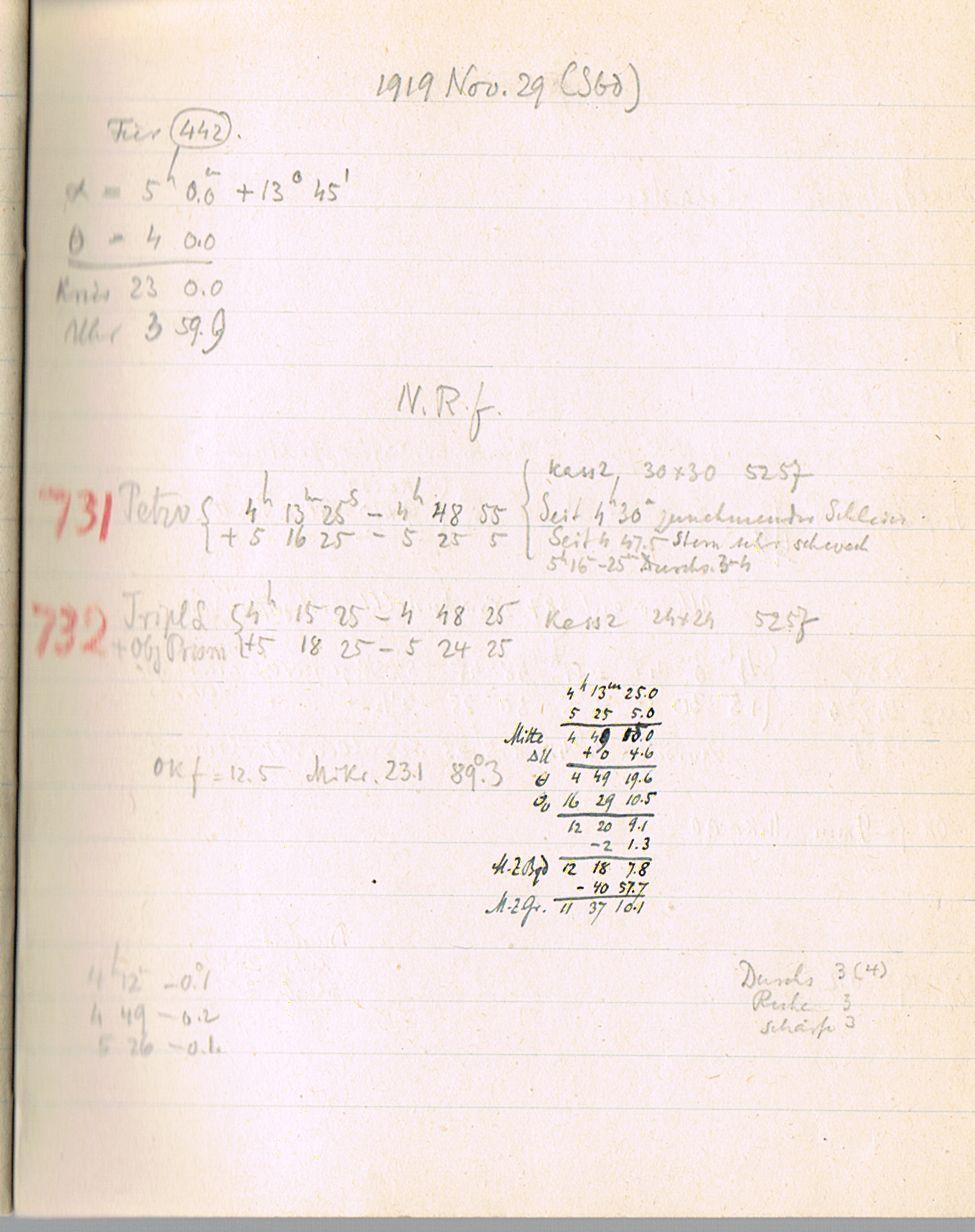 1919 Nov. 29 (SGd)
Für 442.
α = 5h 0.0m + 13° 45'
θ = 4 0.0
Kreis 23 0.0
Uhr 3 59.9
N.R.f.
731 Petzv { 4h 13m 25s – 4h 48 55
+ 5 16 25 – 5 25 5
Kass2, 30×30 5257
Seit 4h30m zunehmender Schleier.
Seit 4 47.5 Stern sehr schwach
5h16–25m Durchs. 3–4
732 Tripl { 4h 15 25 – 4 48 25 Kass2 24×24 5257
+ Obj Prism { +5 18 25 – 5 24 25
4h 13m 25.0
5 25 5.0
Mitte 4 49 15.0
ΔU +0 4.6
θ 4 49 19.6
θ0 16 29 10.5
12 20 9.1
–2 1.3
M.Z.Bgd 12 18 7.8
– 40 57.7
M.Z.Gr. 11 37 10.1
OK f = 12.5 Mikr. 23.1 89°.3
4h 12m –0.°1
4 49 –0.2
5 26 –0.1
Durchs 3 (4)
Ruhe 3
Schärfe 3